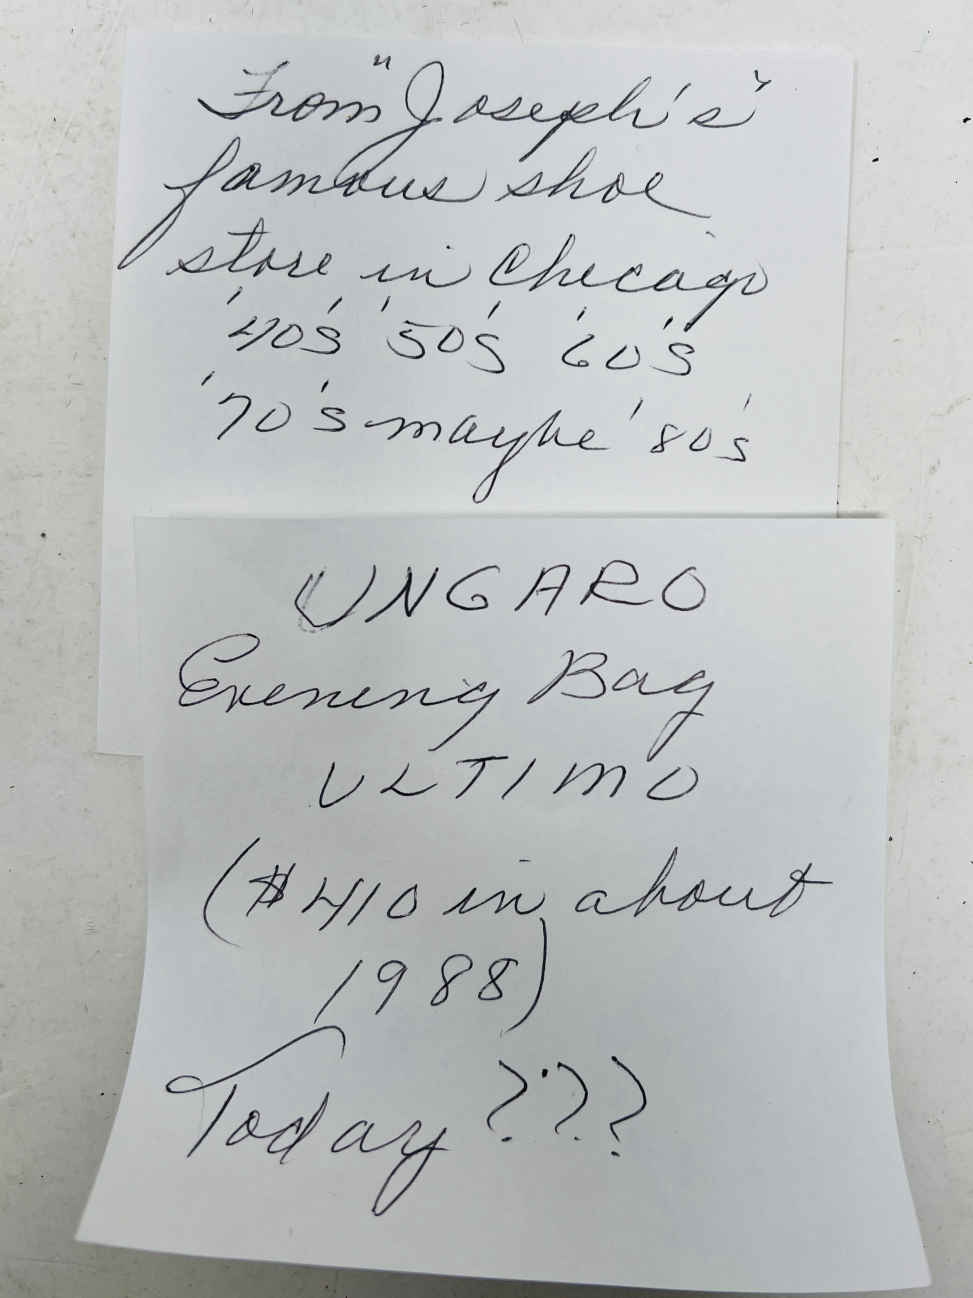 From "Joseph's"
famous shoe
store in Chicago
'40's '50's '60's
'70's maybe '80's
UNGARO
Evening Bag
ULTIMO
($410 in about
1988)
Today ???